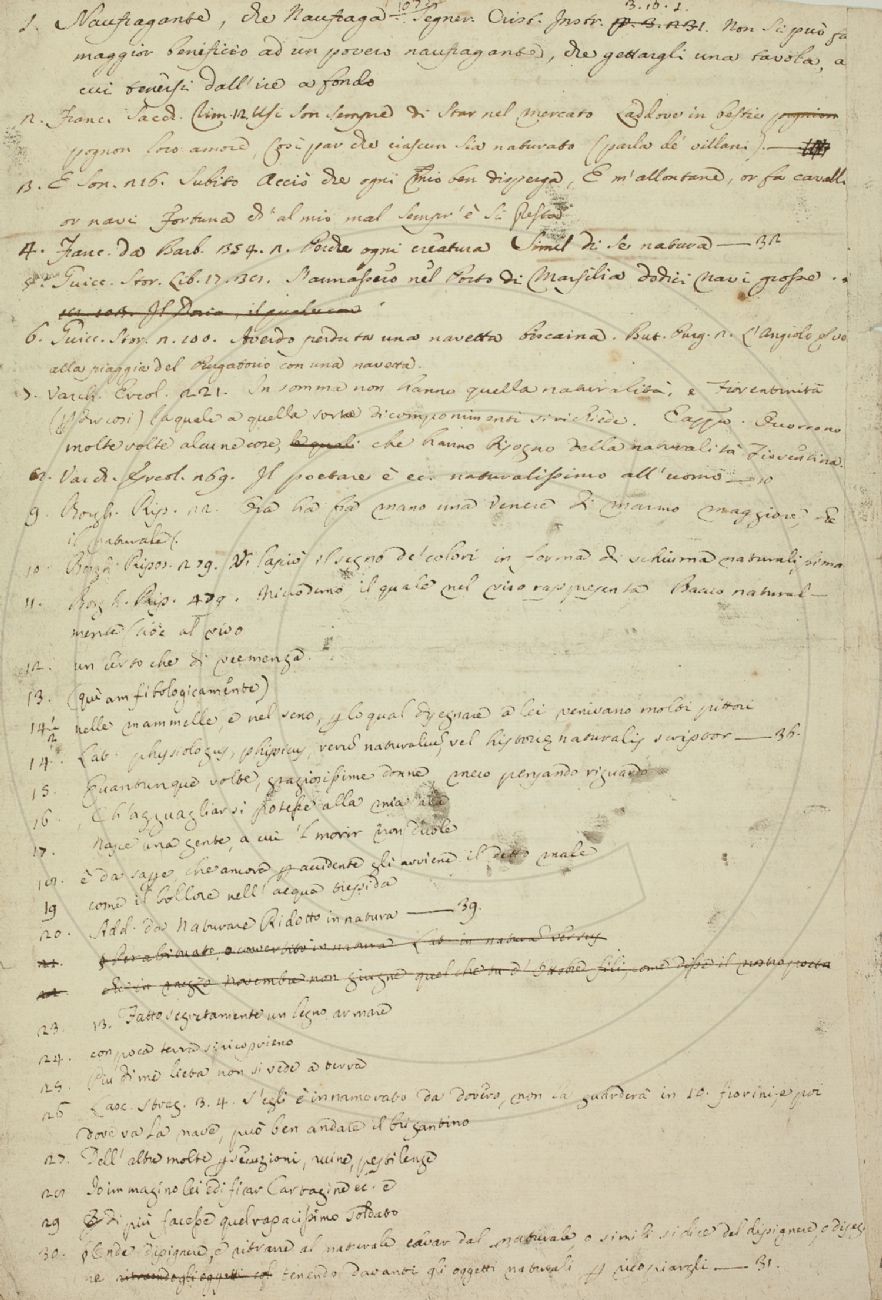 1. Naufragante, che Naufraga — Segner. Crist. Instr. 3. 10. 1. Non si può fa
maggior beneficio ad un povero naufragante, che gettargli una tavola, a
cui tenersi dall'ire a fondo
2. Franc. Sacch. Rim. 12. Usi son sempre di star nel mercato Laddove in bestie
pognon loro amore, Così par che ciascun sia naturato (parla de' villani).
3. E Son. 26. Subito Acciò che ogni mio ben disperga, E m'allontane, or fa cavalli
or navi Fortuna ch'al mio mal sempr'è sì presta
4. Franc. da Barb. 354. 2. Perchè ogni creatura Simil di se natura — 32
5. Guicc. Stor. Lib. 17. 301. Stavano nel Porto di Marsilia dodici navi grosse
Il Doria, il quale
6. Guicc. Stor. 2. 100. Avendo perduta una navetta biscaina. But. Purg. 2. L'Angiolo
alla piaggia del Purgatorio con una navetta.
7. Varch. Ercol. 221. In somma non hanno quella naturalità, e Fiorentinità
(per dir così) la quale a quella sorte di componimenti si richiede. E appo. Occorrono
molte volte alcune cose, le quali che hanno bisogno della naturalità Fiorentina.
8. Varch. Ercol. 269. Il poetare è ec. naturalissimo all'uomo
9. Borgh. Rip. 12. Era ha fra mano una Venere di marmo maggiore, che
il naturale.
10. Borgh. Ripos. 279. Vi lasciò il segno de' colori in forma di schiuma naturalissima
11. Borgh. Rip. 479. Nicodemo il quale nel viso rappresenta Baccio natural-
mente cioè al vivo
12. un certo che di veemenza.
13. (quì amfibologicamente)
14. 1/2 nelle mammelle, e nel seno, per lo qual disegnare a lei venivano molti pittori
14. Lat. physiologus, physicus, rerum naturalium, vel historiæ naturalis scriptor — 36.
15. Quantunque volte, graziosissime donne, meco pensando riguardo
16. Ch'agguagliar si potesse alla mia ala
17. Nasce una gente, a cui 'l morir non duole
18. è da sape. che amore per accidente gli avviene il detto male
19 come il bollore nell'acqua tiepida
20. Add. da Naturare Ridotto in natura — 39.
21. Per abituato, o convertito in natura Lat. in natura versus
22. ch'a mezzo novembre non giugne quel che tu d'Ottobre fili, come disse il nostro poeta
23. 13. Fatto segretamente un legno armare
24. con poca terra si ricoprieno
25. Più di me lieta non si vede a terra
26 Lasc. Streg. 3. 4. S'egli è innamorato da dovero, non la guarderà in 10. fiorini, e poi
dove va la nave, può ben andare il brigantino
27. Dell'altre molte persecuzioni, ruine, pestilenze
28. Io immagino lei edificar Cartagine ec. e
29 E di più facesse quel rapacissimo soldato
30. Onde dipignere, e ritrarre al naturale cavar dal naturale o simili si dice del dipignere, o disegna
re ritraendo gli oggetti tenendo davanti gli oggetti naturali per ricopiargli — 31.